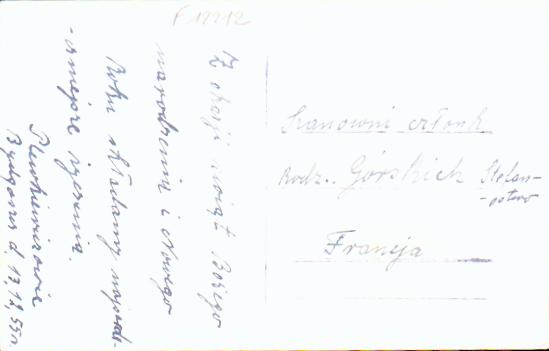 F 12212
Z okazji świąt Bożego
narodzenia i Nowego
Roku składamy najserde-
-czniejsze życzenia.
Bydgoszcz d 13.12.55r.
Szanowni członk
Rodz. Górskich Stefan-
-ostwo
Francja